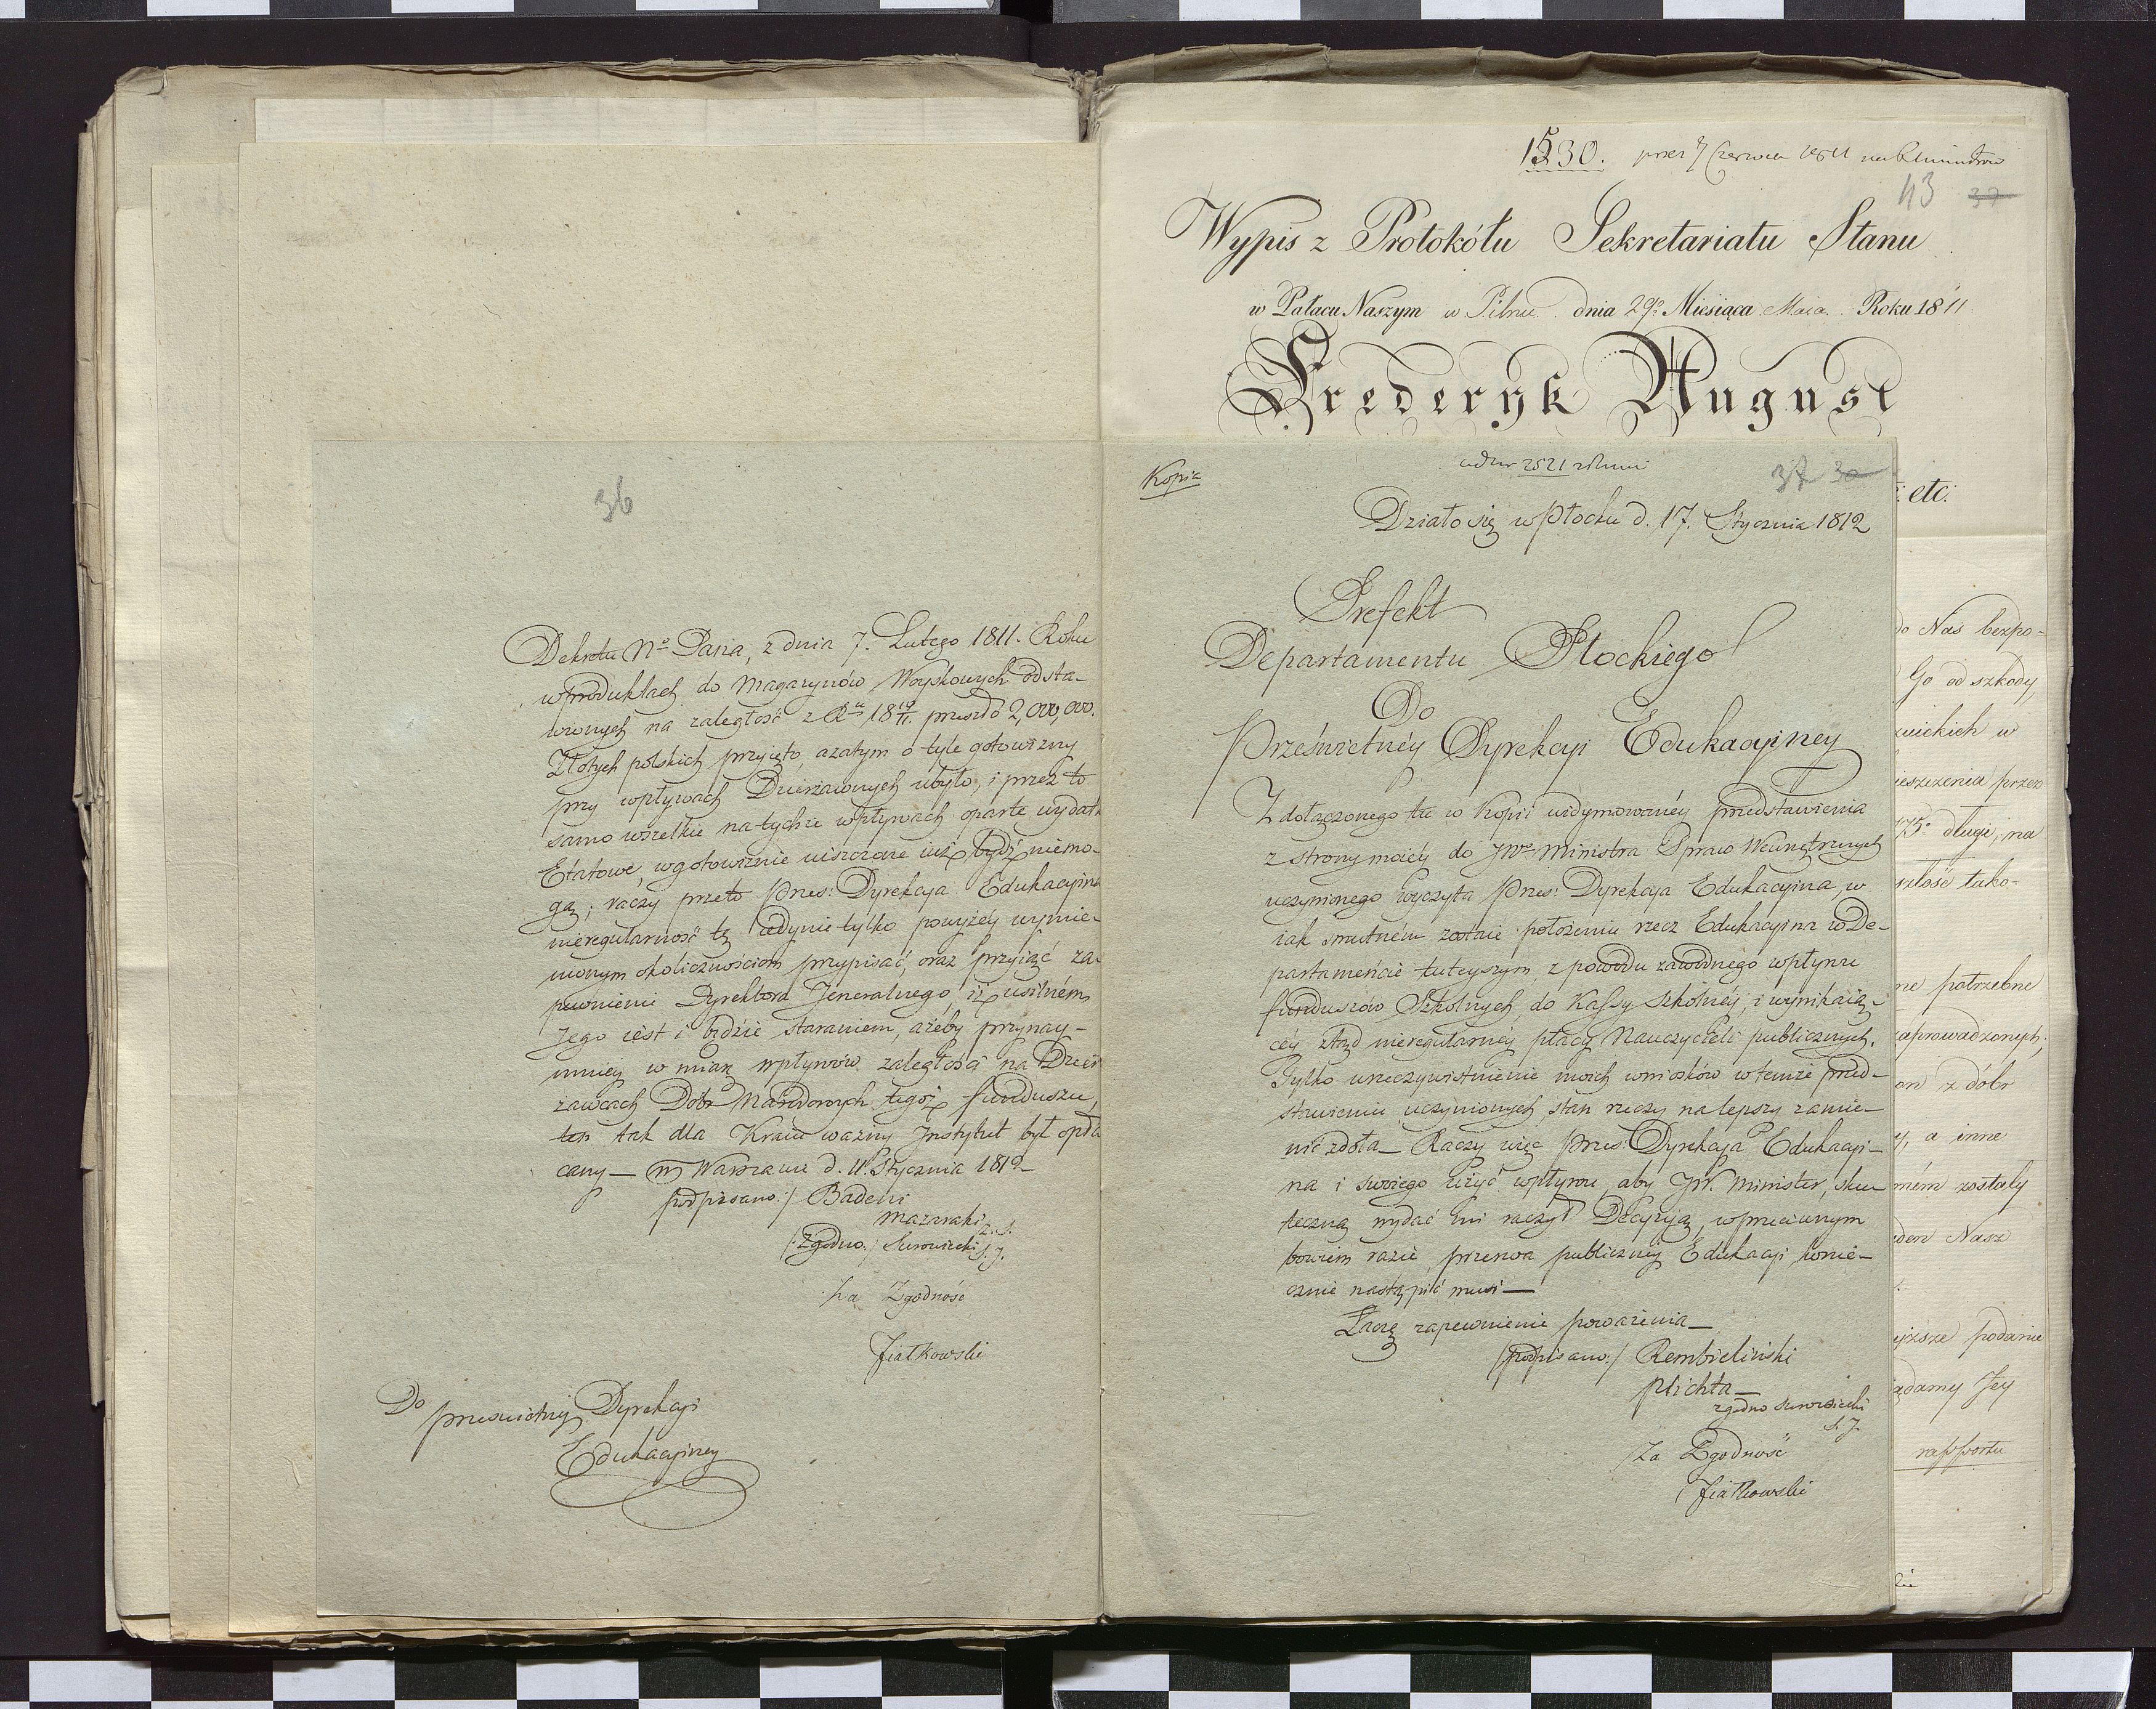 36
Dekretu No Pana, z dnia 7. Lutego 1811. Roku
w produktach do Magazynów Woyskowych odsta-
wionych na zaległość z Ru 18 10/11. przeszło 2,000,000.
Złotych polskich przyięto, azatym o tyle gotowizny
przy wpływach Dzierżawnych ubyło, i przez to
samo wszelkie na tychże wpływach oparte wydatk
Etatowe, w gotowiznie uiszczone iuż bydź niemo-
gą; raczy przeto Prześ: Dyrekcya Edukacyina
nieregularność tę iedynie tylko powyżey wymie-
nionym okolicznościom przypisać, oraz przyiąć za-
pewnienie Dyrektora Jeneralnego, iż usilném
Jego iest i będzie staraniem, ażeby przynay-
mniey w miarę wpływów zaległości na Dzier
żawcach Dóbr Narodowych tegóż funduszu,
ten tak dla Kraiu ważny Instytut był opła
cany — w Warszawie d. 11. Stycznia 1812 —
podpisano:/ Badeni
Mazaraki Z. S.
/:Zgodno:/ Surowiecki S. J.
Za Zgodność
Fiałkowski
Do
prześwietney Dyrekcyi
Edukacyiney
1530. 7 Czerwca 1811
43 37
Wypis z Protokółu Sekretariatu Stanu
w Pałacu Naszym w Pilnic. dnia 29o Miesiąca Maia. Roku 1811
Frederyk August
etc:
Kopia
2521
37 30
Działo się w Płocku d. 17. Stycznia 1812
Prefekt
Departamentu Płockiego
Do
Prześwietnéy Dyrekcyi Edukacyiney
Z dołączonego tu w Kopii widymowanéy przedstawienia
z strony moiéy do JWo Ministra Spraw Wewnętrznych
uczynionego wyczyta Prześ: Dyrekcya Edukacyina, w
iak smutném zostaie położeniu rzecz Edukacyina w De-
partamencie tuteyszym, z powodu zawodnego wpływu
funduszów Szkolnych, do Kassy Szkolnéy, i wynikaią-
céy ztąd nieregularnéy płacy Nauczycieli publicznych.
Tylko urzeczywistnienie moich wniosków w temże przed-
stawieniu uczynionych, stan rzeczy na lepszy zamie-
nić zdoła — Raczy więc Prześ: Dyrekcya Edukacyi-
na i swoiego użyć wpływu, aby JW. Minister, sku-
teczną wydać mi raczył Decyzyją, w przeciwnym
bowiem razie, przerwa publiczney Edukacyi konie-
cznie nastąpić musi —
Łączę zapewnienie poważenia —
/podpisano:/ Rembieliński
Plichta —
zgodno Surowiecki
S. J.
Za Zgodność
Fiałkowski
do Nas bezpo=
Go od szkody,
wieckich w
ieszczenia przez
175o długi, na
szłość tako-
ne potrzebne
aprowadzonych;
on z dóbr
y, a inne
mém zostały
den Nasz
yższe podanie
ądamy Jey
rapportu